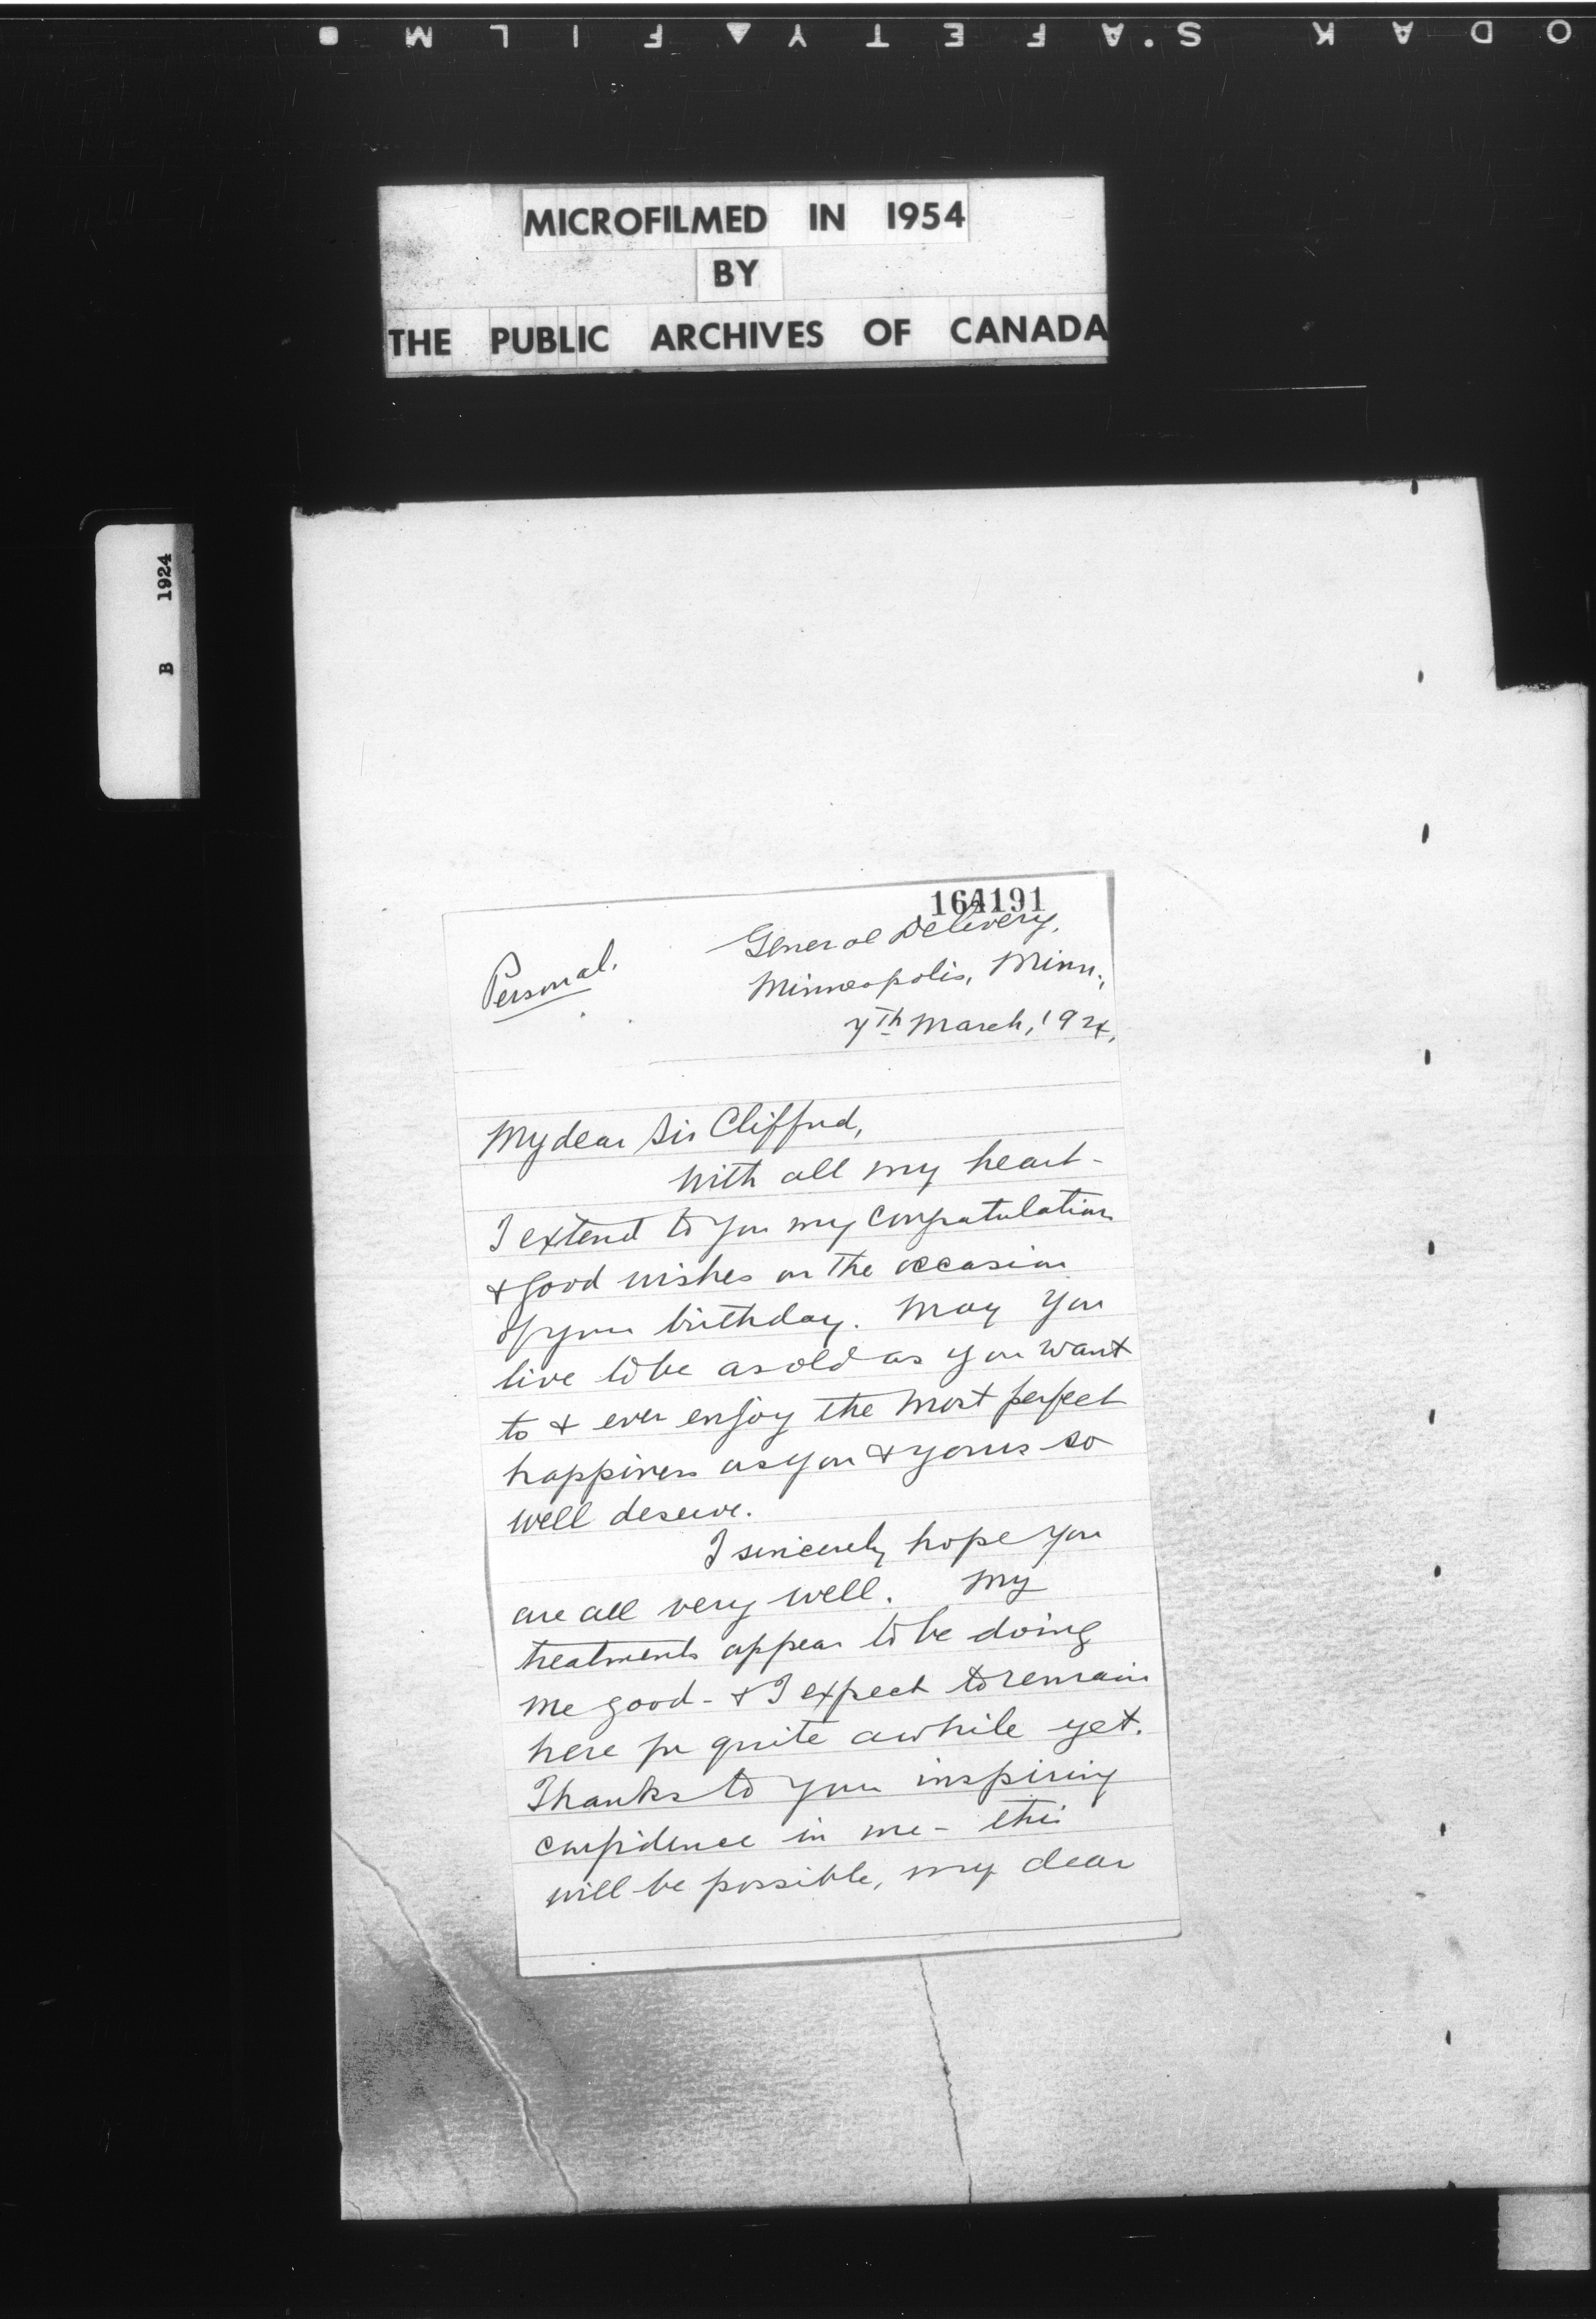 KODAK SAFETY FILM
MICROFILMED IN 1954
BY
THE PUBLIC ARCHIVES OF CANADA
B 1924
164191
Personal.
General Delivery,
Minneapolis, Minn.,
7th March, 1924,
My dear Sir Clifford,
With all my heart-
I extend to you my congratulations
& good wishes on the occasion
of your birthday. May you
live to be as old as you want
to & ever enjoy the most perfect
happiness as you & yours so
well deserve.
I sincerely hope you
are all very well. My
treatments appear to be doing
me good - & I expect to remain
here for quite awhile yet.
Thanks to your inspiring
confidence in me - this
will be possible, my dear